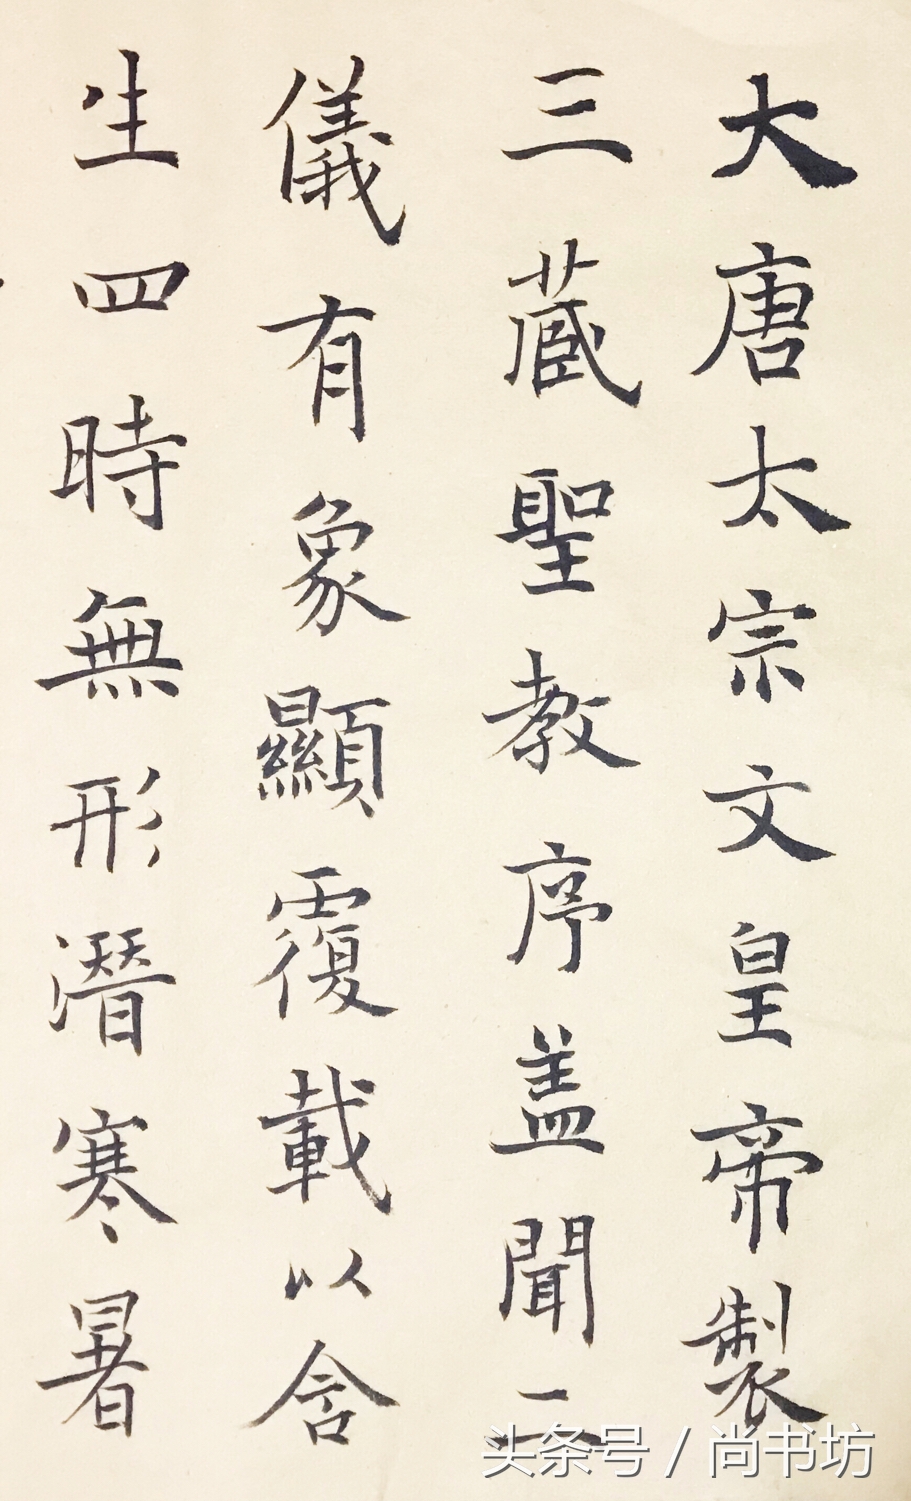 大唐太宗文皇帝製
三藏聖教序盖聞二
儀有象顯覆載以含
生四時無形潛寒暑
头条号 / 尚书坊